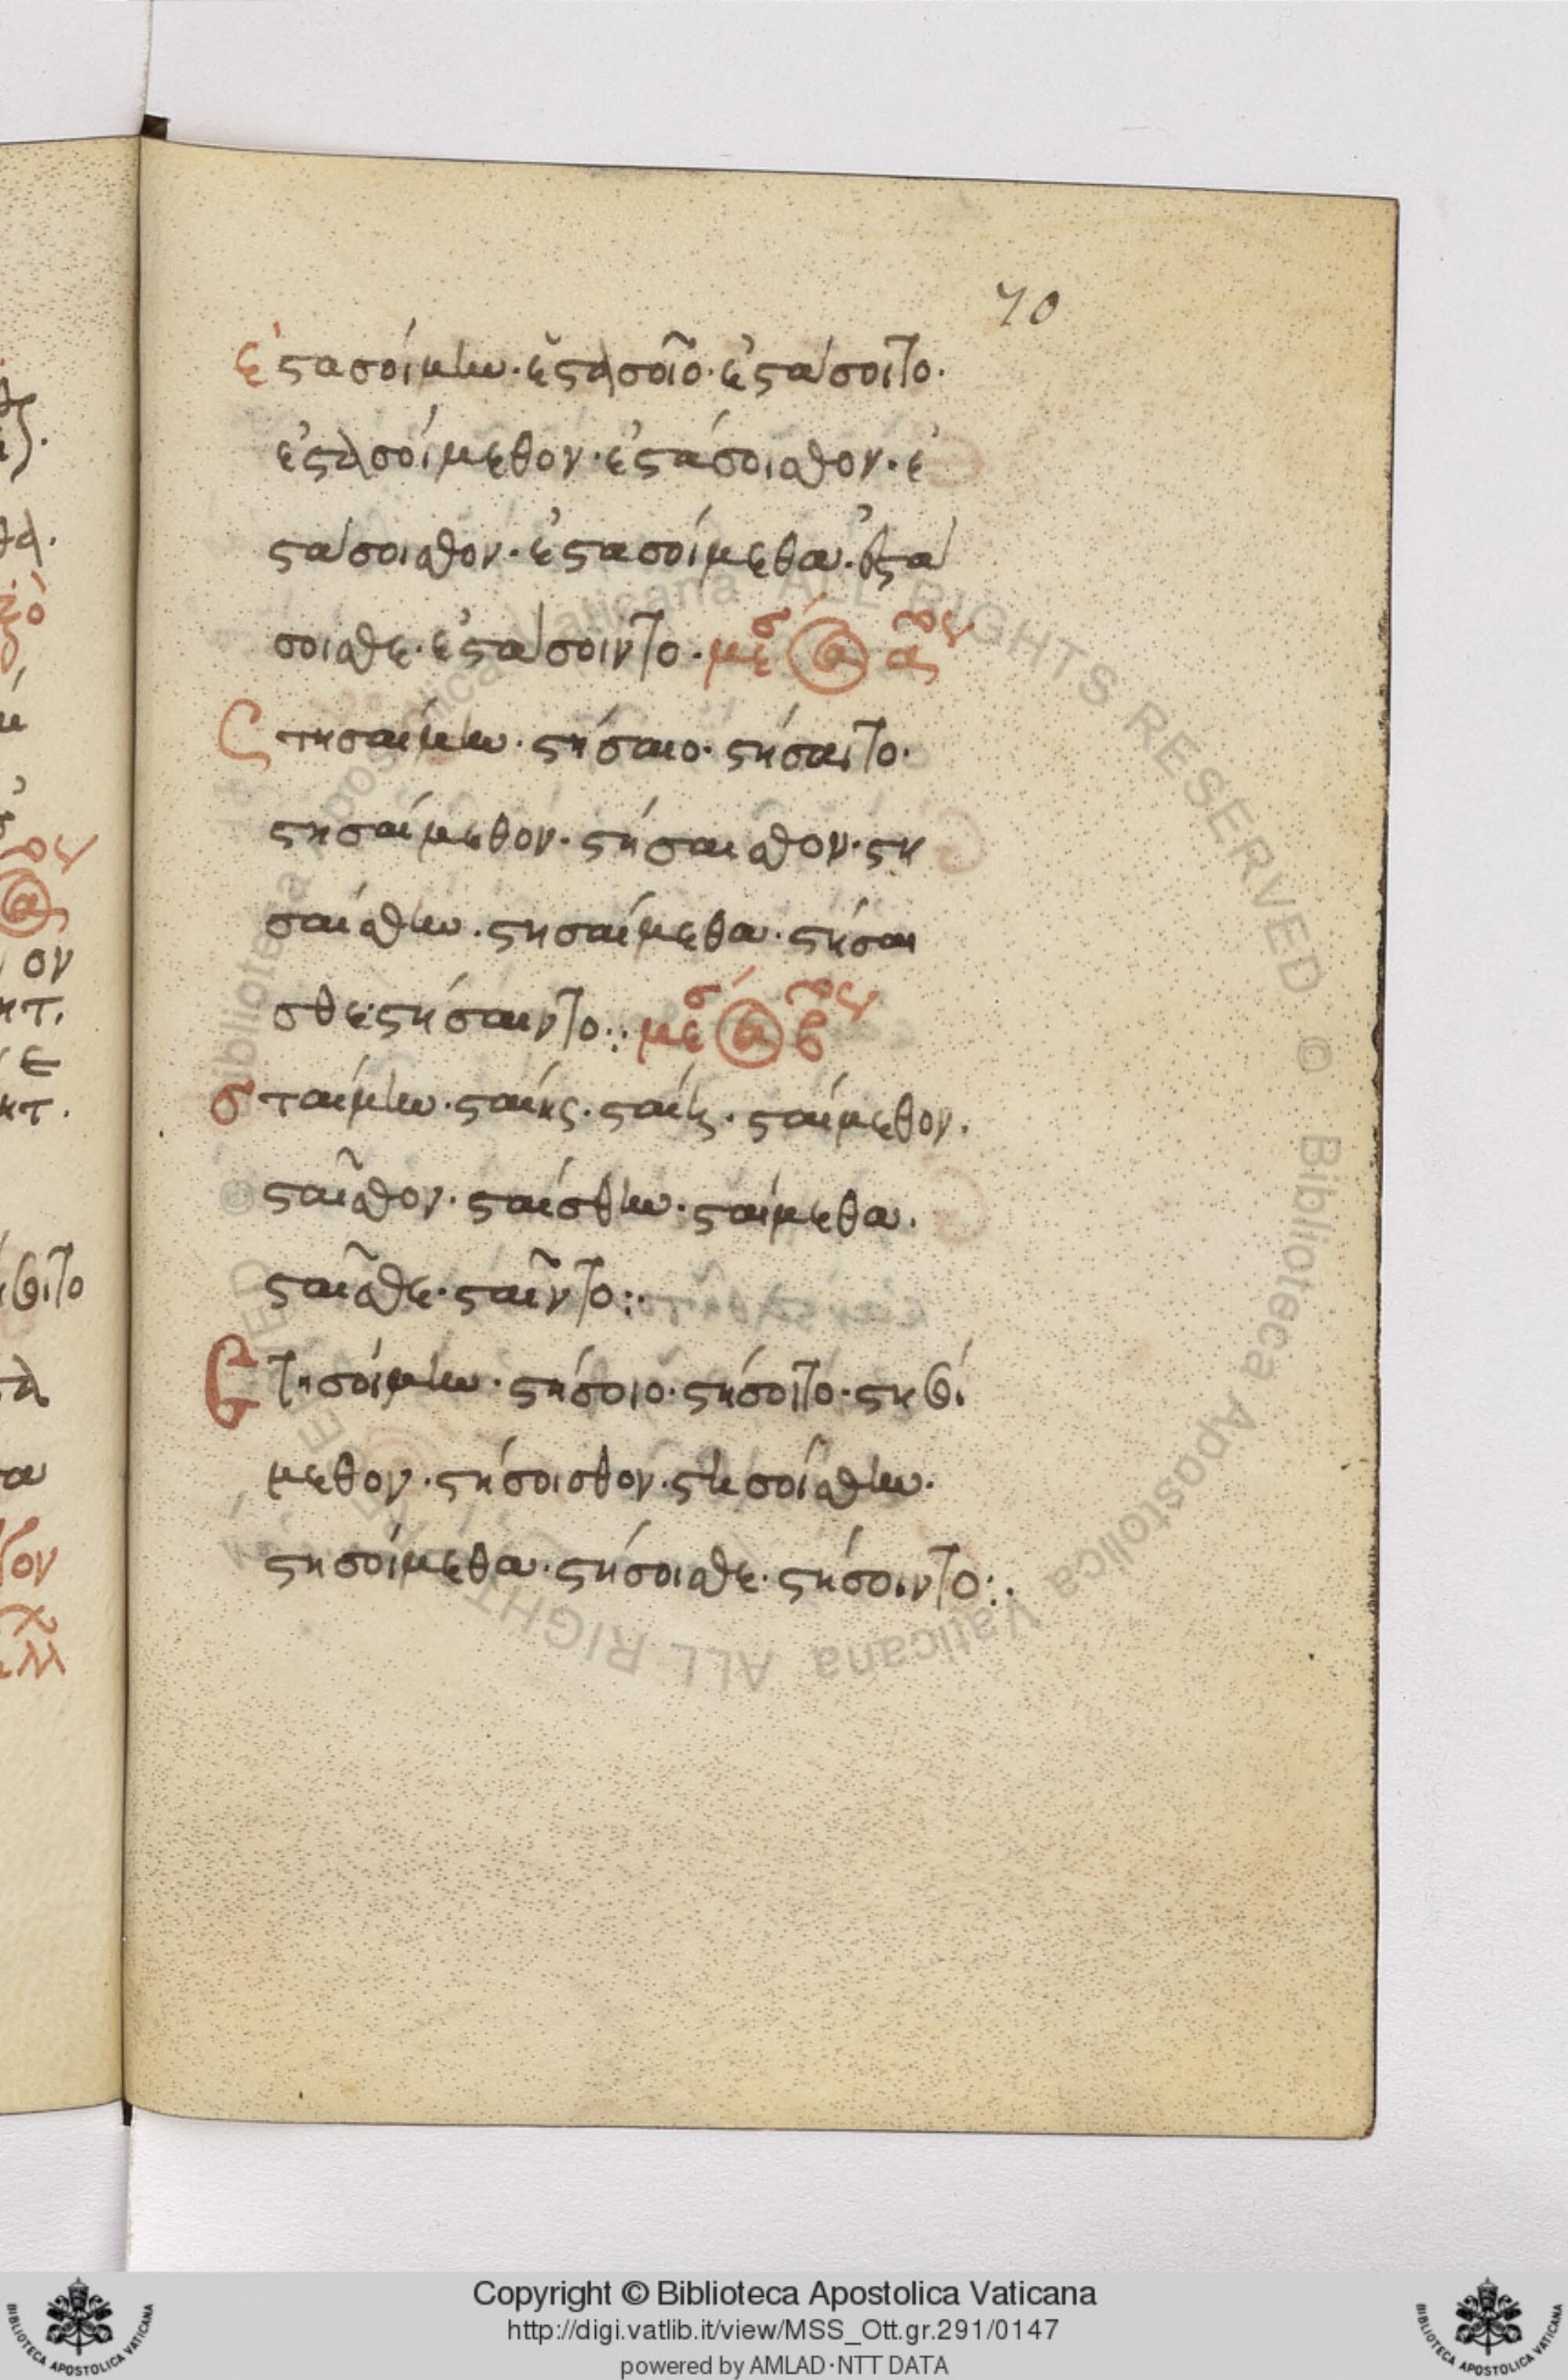 70
ἐστασοίμην· ἐστασοῖο· ἐστάσοιτο·
ἐστασοίμεθον· ἐστάσοισθον· ἐ
στάσοισθον· ἐστασοίμεθα· ἐστά
σοισθε· ἐστάσοιντο·
στησαίμην· στήσαιο· στήσαιτο·
στησαίμεθον· στήσαισθον· στη
σαίσθην· στησαίμεθα· στήσαι
σθε· στήσαιντο:
σταίμην· σταίης· σταίη· σταίμεθον·
σταῖσθον· σταίσθην· σταίμεθα·
σταῖσθε· σταῖντο:·
Στησοίμην· στήσοιο· στήσοιτο· στησοί
μεθον· στήσοισθον· στησοίσθην·
στησοίμεθα· στήσοισθε· στήσοιντο:·
ον
Copyright © Biblioteca Apostolica Vaticana
http://digi.vatlib.it/view/MSS_Ott.gr.291/0147
powered by AMLAD·NTT DATA